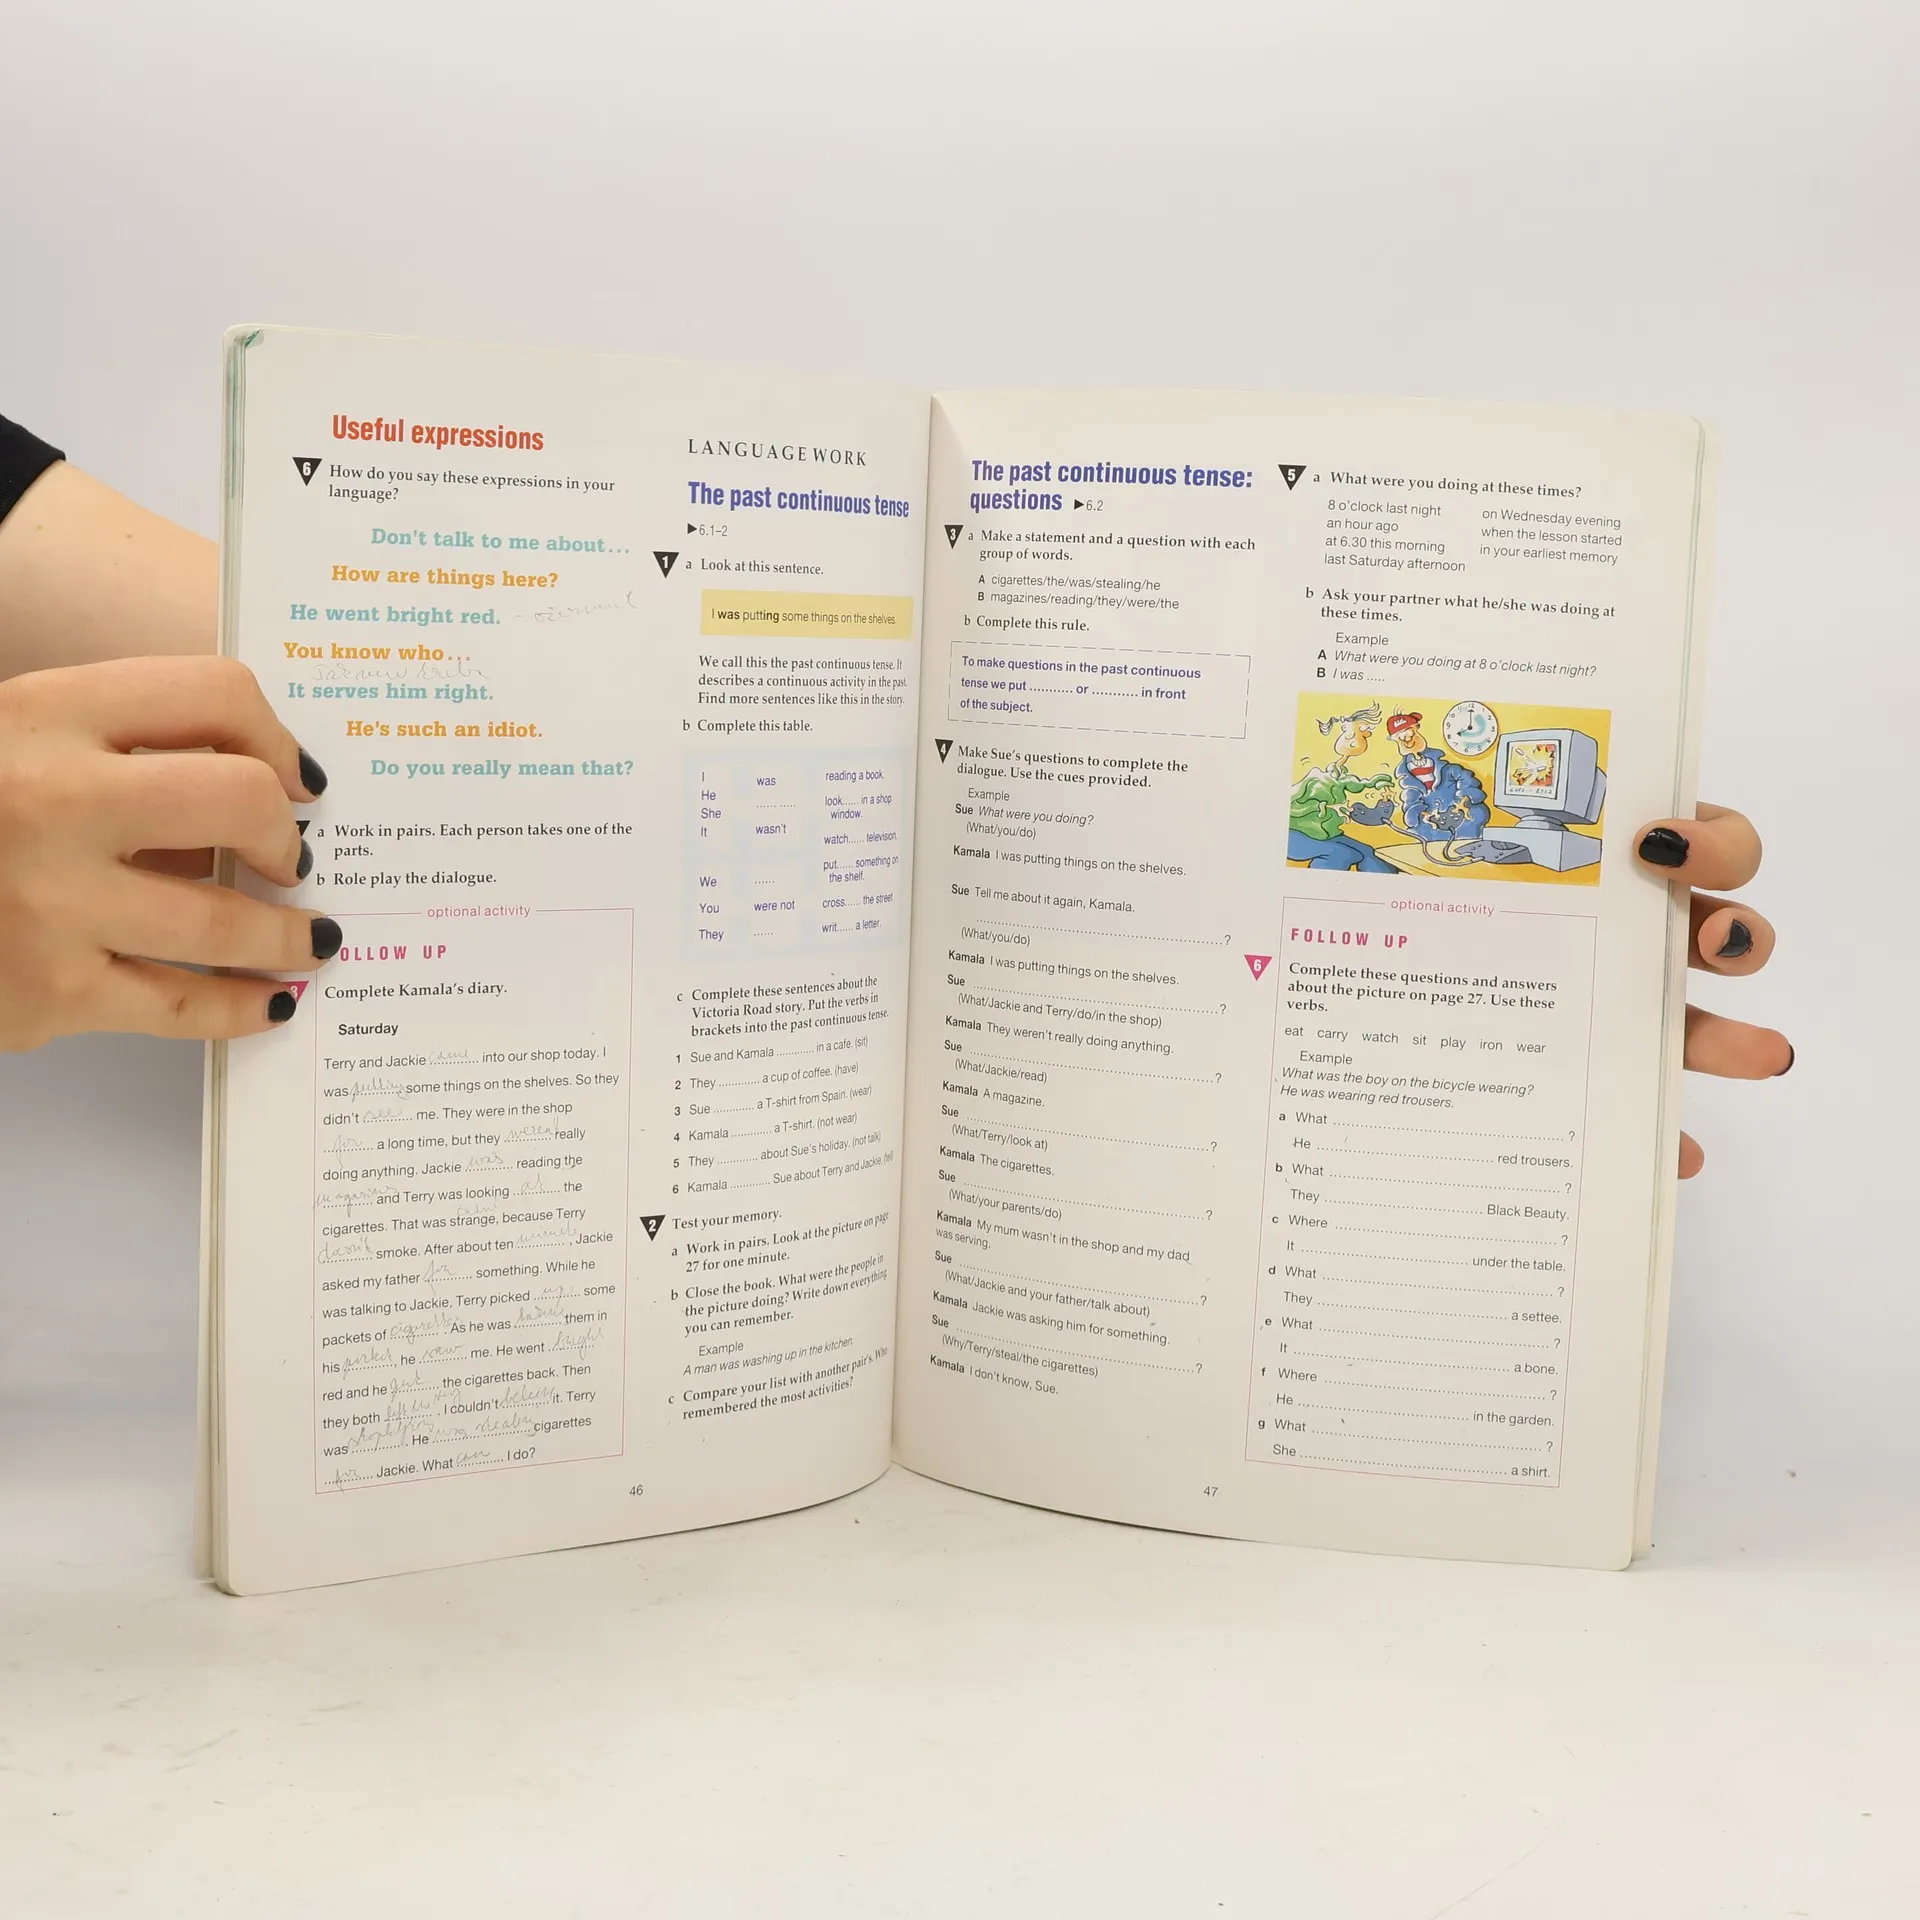 Useful expressions
6 How do you say these expressions in your
language?
Don't talk to me about...
How are things here?
He went bright red.
You know who...
It serves him right.
He's such an idiot.
Do you really mean that?
a Work in pairs. Each person takes one of the
parts.
b Role play the dialogue.
optional activity
OLLOW UP
Complete Kamala's diary.
Saturday
Terry and Jackie came into our shop today. I
was putting some things on the shelves. So they
didn't see me. They were in the shop
for a long time, but they weren't really
doing anything. Jackie was reading the
magazines and Terry was looking at the
cigarettes. That was strange, because Terry
doesn't smoke. After about ten minutes, Jackie
asked my father for something. While he
was talking to Jackie, Terry picked up some
packets of cigarettes. As he was them in
his pocket, he saw me. He went bright
red and he put the cigarettes back. Then
they both left the. I couldn't believe it. Terry
was shoplifting. He was stealing cigarettes
for Jackie. What can I do?
46
LANGUAGE WORK
The past continuous tense
▶6.1–2
1 a Look at this sentence.
I was putting some things on the shelves.
We call this the past continuous tense. It
describes a continuous activity in the past.
Find more sentences like this in the story.
b Complete this table.
I was reading a book.
He ........... look...... in a shop
She window.
It wasn't watch...... television.
We ...... put...... something on
the shelf.
You were not cross...... the street
They ...... writ...... a letter.
c Complete these sentences about the
Victoria Road story. Put the verbs in
brackets into the past continuous tense.
1 Sue and Kamala ............ in a cafe. (sit)
2 They ............ a cup of coffee. (have)
3 Sue ............ a T-shirt from Spain. (wear)
4 Kamala ............ a T-shirt. (not wear)
5 They ............ about Sue's holiday. (not talk)
6 Kamala ............ Sue about Terry and Jackie. (tell)
2 Test your memory.
a Work in pairs. Look at the picture on page
27 for one minute.
b Close the book. What were the people in
the picture doing? Write down everything
you can remember.
Example
A man was washing up in the kitchen.
c Compare your list with another pair's. Who
remembered the most activities?
The past continuous tense:
questions ▶6.2
3 a Make a statement and a question with each
group of words.
A cigarettes/the/was/stealing/he
B magazines/reading/they/were/the
b Complete this rule.
To make questions in the past continuous
tense we put ........... or ........... in front
of the subject.
4 Make Sue's questions to complete the
dialogue. Use the cues provided.
Example
Sue What were you doing?
(What/you/do)
Kamala I was putting things on the shelves.
Sue Tell me about it again, Kamala.
....................?
(What/you/do)
Kamala I was putting things on the shelves.
Sue ....................?
(What/Jackie and Terry/do/in the shop)
Kamala They weren't really doing anything.
Sue ....................?
(What/Jackie/read)
Kamala A magazine.
Sue ....................?
(What/Terry/look at)
Kamala The cigarettes.
Sue ....................?
(What/your parents/do)
Kamala My mum wasn't in the shop and my dad
was serving.
Sue ....................?
(What/Jackie and your father/talk about)
Kamala Jackie was asking him for something.
Sue ....................?
(Why/Terry/steal/the cigarettes)
Kamala I don't know, Sue.
47
5 a What were you doing at these times?
8 o'clock last night on Wednesday evening
an hour ago when the lesson started
at 6.30 this morning in your earliest memory
last Saturday afternoon
b Ask your partner what he/she was doing at
these times.
Example
A What were you doing at 8 o'clock last night?
B I was .....
optional activity
FOLLOW UP
6 Complete these questions and answers
about the picture on page 27. Use these
verbs.
eat carry watch sit play iron wear
Example
What was the boy on the bicycle wearing?
He was wearing red trousers.
a What ....................?
He .................... red trousers.
b What ....................?
They .................... Black Beauty.
c Where ....................?
It .................... under the table.
d What ....................?
They .................... a settee.
e What ....................?
It .................... a bone.
f Where ....................?
He .................... in the garden.
g What ....................?
She .................... a shirt.